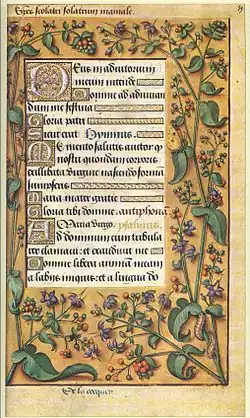 scolatri solatrum maniale.
Deus in adiutorium
meum intende
Domine ad adiuuan
dum me festina
Gloria patri
Sicut erat Hymnus.
Memento salutis auctor q
nostri quondam corporis
ex illibata virgine nascendo forma
sumpseris
Maria mater gratie
Gloria tibi domine. antiphona
Maria virgo. psalmus.
Ad dominum cum tribula
rer clamaui: et exaudiuit me
Domine libera animam meam
a labiis iniquis: et a lingua do
De la